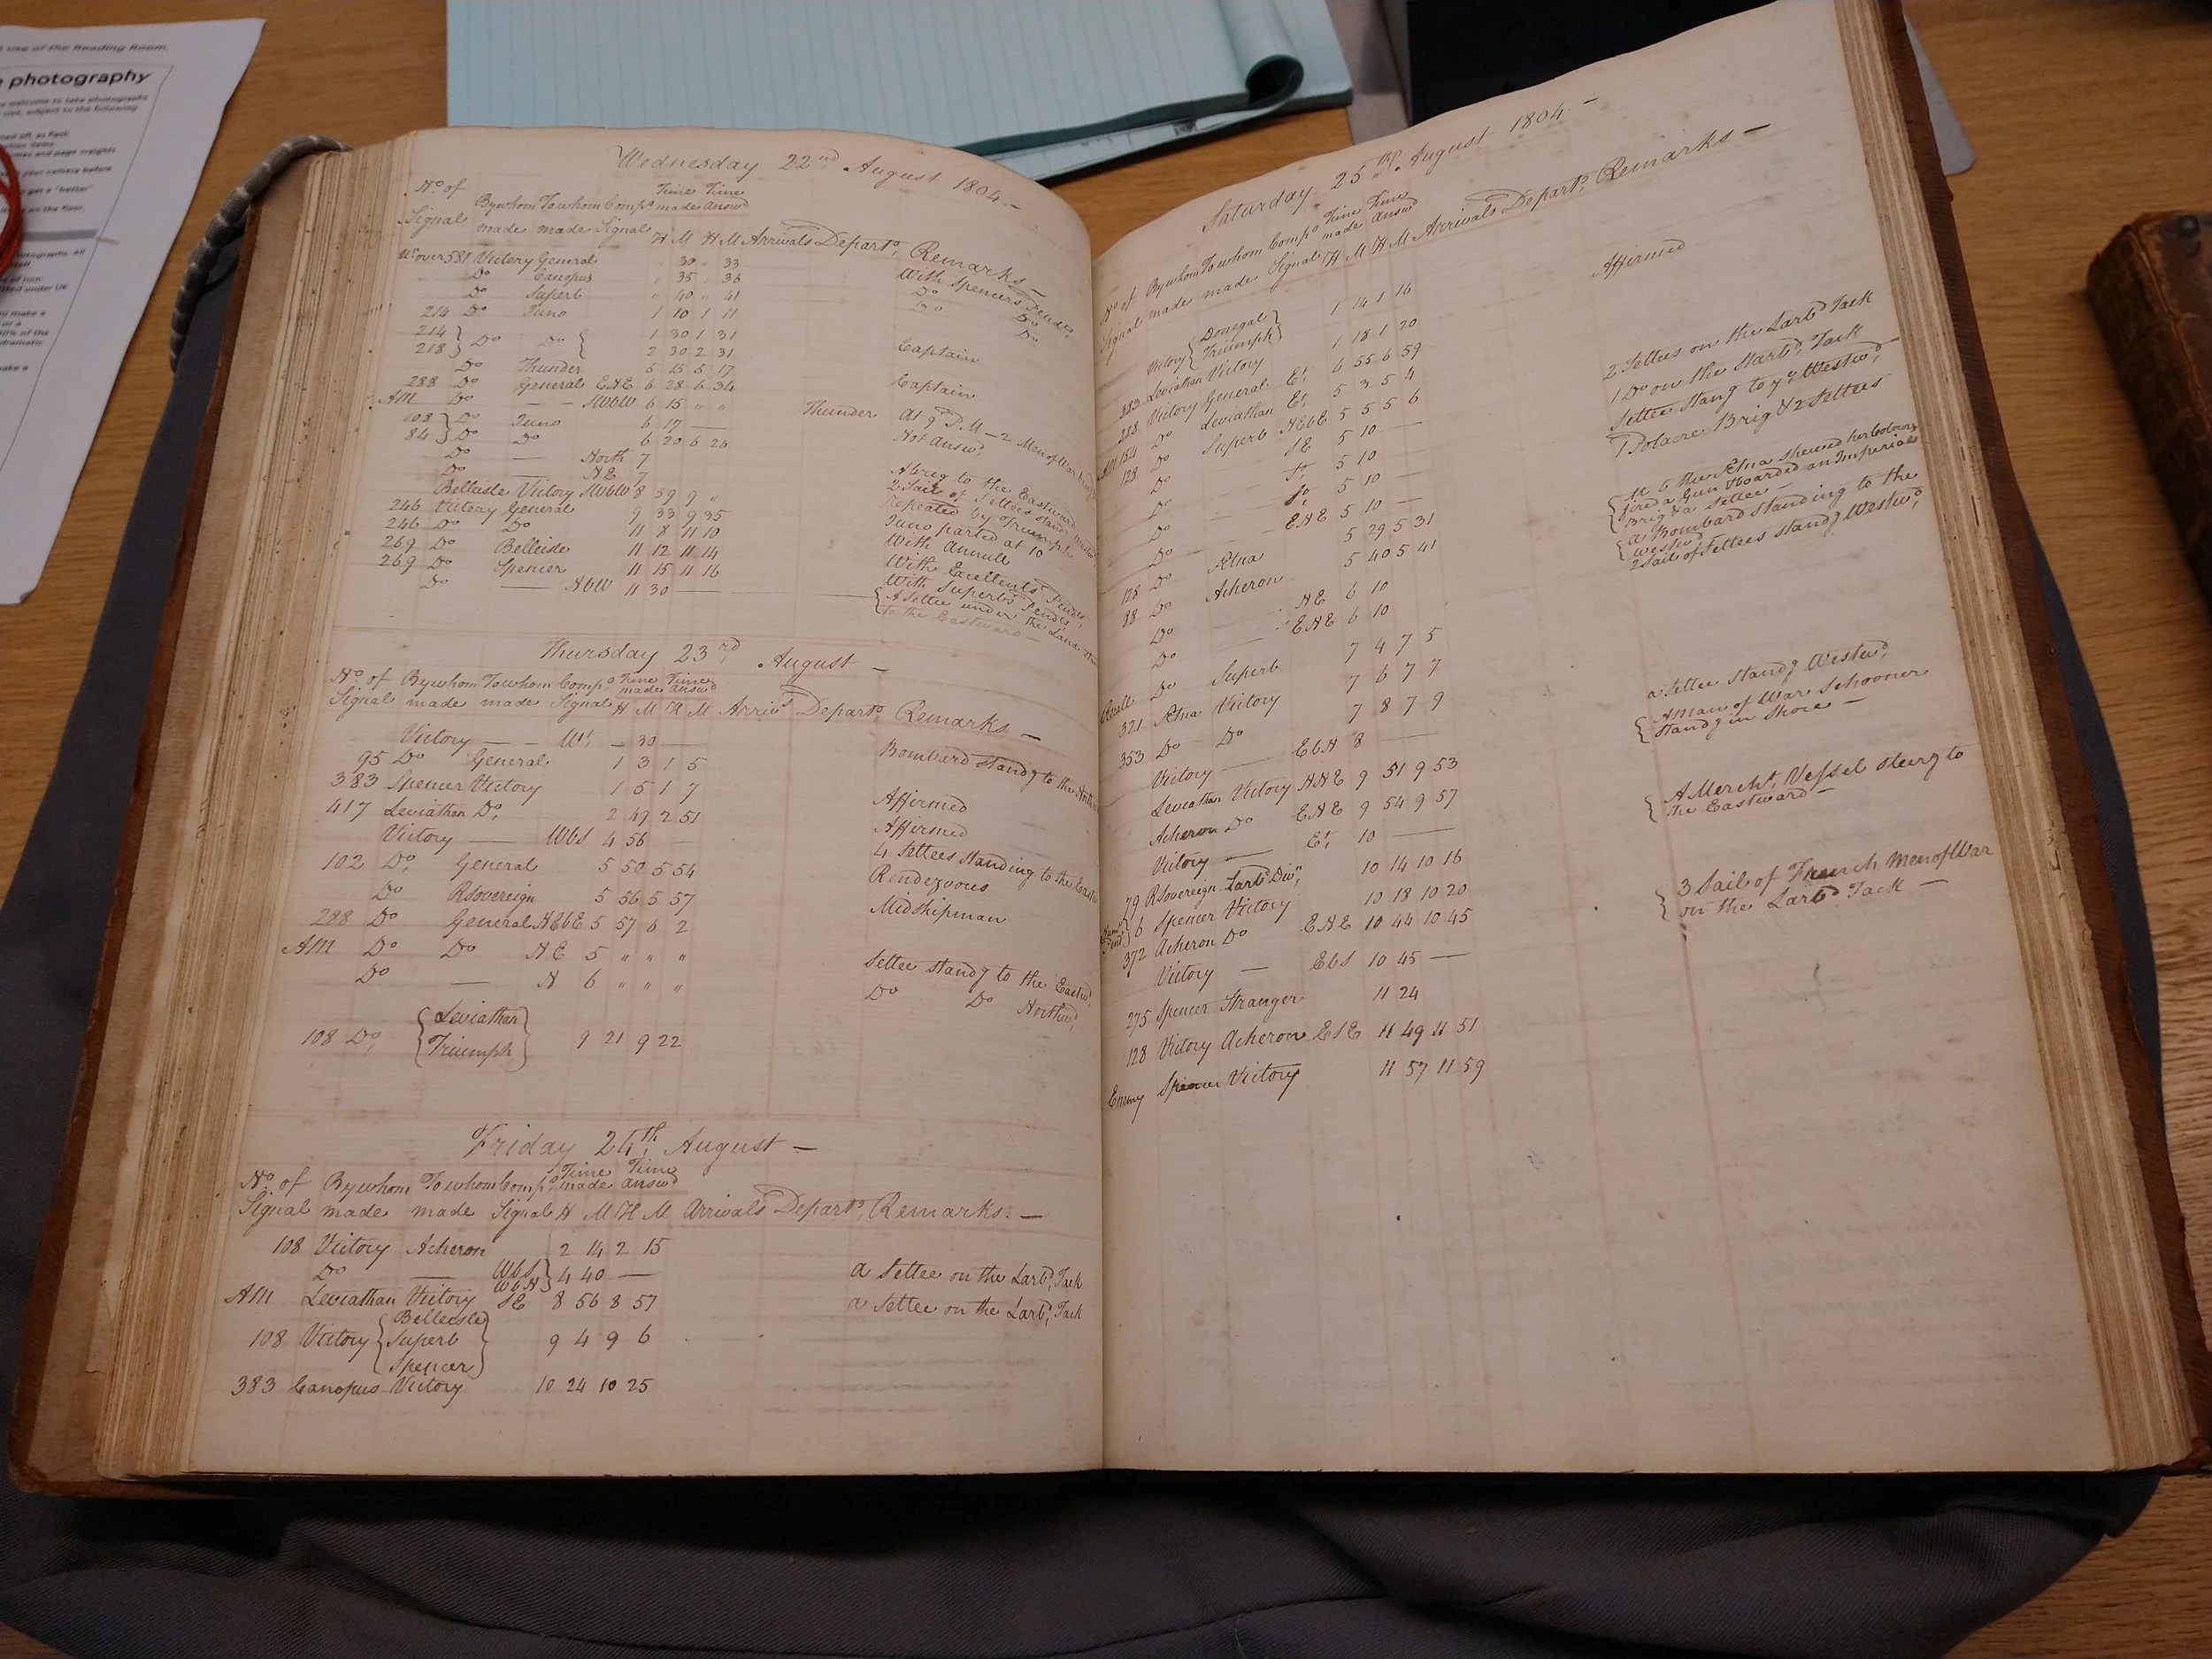 use of the Reading Room.
photography
welcome to take photographs
visit, subject to the following
Wednesday 22nd August 1804 —
No. of By whom To whom Comps Time Time
Signal made made Signal made Answd
H M H M Arrivals Departs, Remarks —
No over 581 Victory General " 30 " 33 With Spencers Pendts
Do Canopus " 35 " 36 Do Do
Do Superb " 40 " 41 Do Do
214 Do Juno 1 10 1 11
214 } Do Do { 1 30 1 31 Captain
218 } 2 30 2 31
Do Thunder 5 15 5 17 Captain
288 Do General ENE 6 28 6 34
AM Do — — SWbW 6 15 " " Thunder At 9 PM — 2 Men of War
108 } Do Juno 6 17 — Not Answd
84 } Do Do 6 20 6 26
Do — North 7 A brig to the Eastward
Do — NE 7 2 Sail of Settees standg
Belleisle Victory SWbW 8 59 9 " Repeated by Triumph
246 Victory General 9 33 9 35 Juno parted at 10
246 Do Do 11 8 11 10 With Annuls
269 Do Belleisle 11 12 11 14 With Excellents Pendts
269 Do Spencer 11 15 11 16 With Superbs Pendts
Do — NbW 11 30 — { A Settee under the Land
to the Eastward —
Thursday 23rd August —
No. of By whom To whom Comps Time Time
made Answd
Signal made made Signal H M H M Arrivs Departs, Remarks —
Victory — — Wt — 30 — Bombard standg to the North
95 Do General 1 3 1 5
383 Spencer Victory 1 5 1 7 Affirmed
417 Leviathan Do 2 49 2 51 Affirmed
Victory — WbS 4 56 — 4 Settees standing to the East
102 Do General 5 50 5 54 Rendezvous
Do RSovereign 5 56 5 57 Midshipman
288 Do General NEbE 5 57 6 2
AM Do Do NE 5 " " " Settee standg to the Eastwd
Do — N 6 " " " Do Do Northwd
108 Do { Leviathan
Triumph } 9 21 9 22
Friday 24th August —
No. of By whom To whom Comps Time Time
made answd
Signal made made Signal H M H M Arrivals Departs, Remarks —
108 Victory Acheron 2 14 2 15
Do — WbS
WbN } 4 40 — a Settee on the Larbd Tack
AM Leviathan Victory SE 8 56 8 57 a Settee on the Larbd Tack
108 Victory { Belleisle
Superb
Spencer } 9 4 9 6
383 Canopus Victory 10 24 10 25
Saturday 25th August 1804 —
No. of By whom To whom Comps Time Time
made Answd
Signal made made Signal H M H M Arrivals Departs, Remarks —
Victory { Donegal
Triumph } 1 14 1 16
383 Leviathan Victory 1 18 1 20 Affirmed
288 Victory General Et 6 55 6 59
AM 154 Do Leviathan Et 5 3 5 4
128 Do Superb NEbE 5 5 5 6
Do SE 5 10 — 2 Settees on the Larbd Tack
Do 5 10 1 Do on the Starbd Tack
Do 5 10 — Settee standg to ye Westwd
Do ENE 5 10 — Polacre Brig & 2 Settees
128 Do Ætna 5 29 5 31
88 Do Acheron 5 40 5 41
Do NE 6 10 { At 6 the Ætna shewed her Colours
fired a Gun & boarded an Imperial
Brig & a Settee —
Do ENE 6 10 { a Bombard standing to the
Westwd
2 Sail of Settees standg Westwd
Do Superb 7 4 7 5
321 Ætna Victory 7 6 7 7
353 Do Do 7 8 7 9
Victory — EbN 8 — a Settee standg Westwd
Leviathan Victory NNE 9 51 9 53 { A Man of War Schooner
standg in Shore —
Acheron Do ENE 9 54 9 57
Victory — Et 10 — { A Mercht Vessel steerg to
the Eastward —
79 RSovereign Larbd Divn 10 14 10 16
6 Spencer Victory 10 18 10 20
372 Acheron Do ENE 10 44 10 45 { 3 Sail of French Men of War
on the Larbd Tack —
Victory — EbS 10 45 —
275 Spencer Stranger 11 24
128 Victory Acheron ESE 11 49 11 51
Enemy Spencer Victory 11 57 11 59